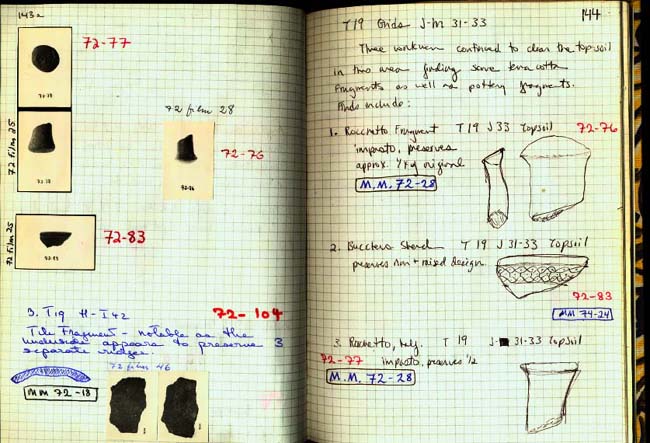 143a
72-77
72-77
72 film 25
72 film 28
72-76
72-76
72-76
72 film 25
72-83
72-83
3. T19 H-I 42
72-104
Tile Fragment - notable as the
underside appears to preserve 3
separate ridges.
72 film 46
MM 72-18
144
T 19 Grids J-M 31-33
Three workmen continued to clean the topsoil
in this area finding some terra cotta
fragments as well as pottery fragments.
Finds include:
1. Rocchetto Fragment T 19 J 33 Topsoil
72-76
impasto, preserves
approx. 1/4 of original
M.M. 72-28
2. Bucchero Sherd T 19 J 31-33 Topsoil
preserves rim + raised design
72-83
MM 74-24
3. Rocchetto, half. T 19 J- 31-33 Topsoil
72-77 impasto, preserves 1/2
M.M. 72-28